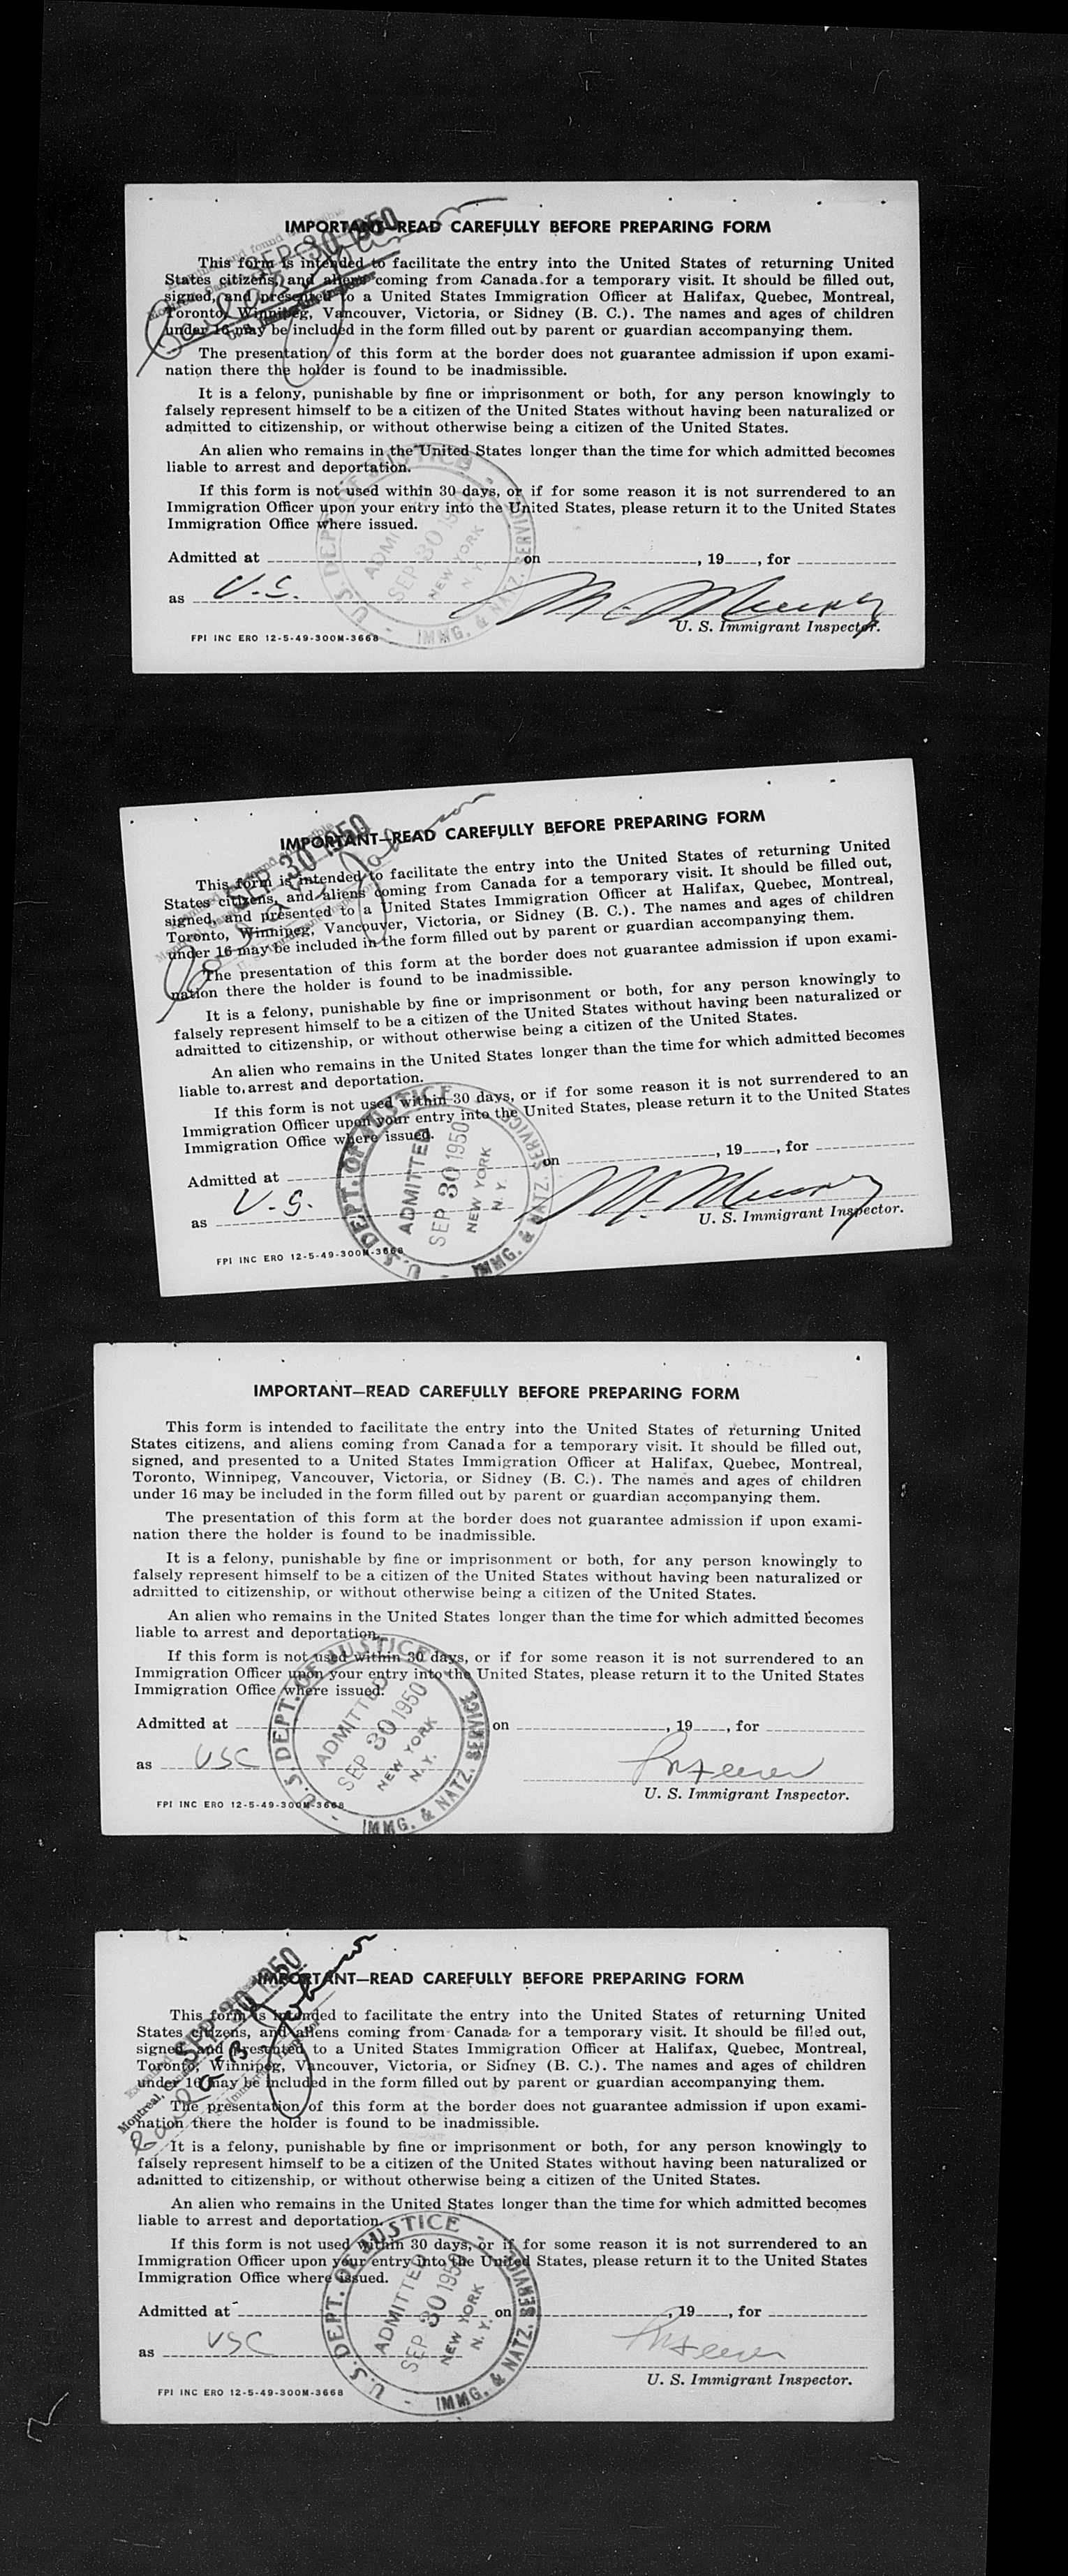 IMPORTANT—READ CAREFULLY BEFORE PREPARING FORM
SEP 30 1950
This form is intended to facilitate the entry into the United States of returning United
States citizens, and aliens coming from Canada for a temporary visit. It should be filled out,
signed, and presented to a United States Immigration Officer at Halifax, Quebec, Montreal,
Toronto, Winnipeg, Vancouver, Victoria, or Sidney (B. C.). The names and ages of children
under 16 may be included in the form filled out by parent or guardian accompanying them.
The presentation of this form at the border does not guarantee admission if upon exami-
nation there the holder is found to be inadmissible.
It is a felony, punishable by fine or imprisonment or both, for any person knowingly to
falsely represent himself to be a citizen of the United States without having been naturalized or
admitted to citizenship, or without otherwise being a citizen of the United States.
An alien who remains in the United States longer than the time for which admitted becomes
liable to arrest and deportation.
If this form is not used within 30 days, or if for some reason it is not surrendered to an
Immigration Officer upon your entry into the United States, please return it to the United States
Immigration Office where issued.
Admitted at on , 19 , for
as U.S.
U. S. Immigrant Inspector.
FPI INC ERO 12-5-49-300M-3668
U.S. DEPT. OF JUSTICE
ADMITTED
SEP 30 1950
NEW YORK
N. Y.
IMMG. & NATZ. SERVICE
IMPORTANT—READ CAREFULLY BEFORE PREPARING FORM
SEP 30 1950
This form is intended to facilitate the entry into the United States of returning United
States citizens, and aliens coming from Canada for a temporary visit. It should be filled out,
signed, and presented to a United States Immigration Officer at Halifax, Quebec, Montreal,
Toronto, Winnipeg, Vancouver, Victoria, or Sidney (B. C.). The names and ages of children
under 16 may be included in the form filled out by parent or guardian accompanying them.
The presentation of this form at the border does not guarantee admission if upon exami-
nation there the holder is found to be inadmissible.
It is a felony, punishable by fine or imprisonment or both, for any person knowingly to
falsely represent himself to be a citizen of the United States without having been naturalized or
admitted to citizenship, or without otherwise being a citizen of the United States.
An alien who remains in the United States longer than the time for which admitted becomes
liable to arrest and deportation.
If this form is not used within 30 days, or if for some reason it is not surrendered to an
Immigration Officer upon your entry into the United States, please return it to the United States
Immigration Office where issued.
Admitted at on , 19 , for
as U.S.
U. S. Immigrant Inspector.
FPI INC ERO 12-5-49-300M-3668
U.S. DEPT. OF JUSTICE
ADMITTED
SEP 30 1950
NEW YORK
N. Y.
IMMG. & NATZ. SERVICE
IMPORTANT—READ CAREFULLY BEFORE PREPARING FORM
This form is intended to facilitate the entry into the United States of returning United
States citizens, and aliens coming from Canada for a temporary visit. It should be filled out,
signed, and presented to a United States Immigration Officer at Halifax, Quebec, Montreal,
Toronto, Winnipeg, Vancouver, Victoria, or Sidney (B. C.). The names and ages of children
under 16 may be included in the form filled out by parent or guardian accompanying them.
The presentation of this form at the border does not guarantee admission if upon exami-
nation there the holder is found to be inadmissible.
It is a felony, punishable by fine or imprisonment or both, for any person knowingly to
falsely represent himself to be a citizen of the United States without having been naturalized or
admitted to citizenship, or without otherwise being a citizen of the United States.
An alien who remains in the United States longer than the time for which admitted becomes
liable to arrest and deportation.
If this form is not used within 30 days, or if for some reason it is not surrendered to an
Immigration Officer upon your entry into the United States, please return it to the United States
Immigration Office where issued.
Admitted at on , 19 , for
as USC
U. S. Immigrant Inspector.
FPI INC ERO 12-5-49-300M-3668
U.S. DEPT. OF JUSTICE
ADMITTED
SEP 30 1950
NEW YORK
N. Y.
IMMG. & NATZ. SERVICE
IMPORTANT—READ CAREFULLY BEFORE PREPARING FORM
SEP 30 1950
This form is intended to facilitate the entry into the United States of returning United
States citizens, and aliens coming from Canada for a temporary visit. It should be filled out,
signed, and presented to a United States Immigration Officer at Halifax, Quebec, Montreal,
Toronto, Winnipeg, Vancouver, Victoria, or Sidney (B. C.). The names and ages of children
under 16 may be included in the form filled out by parent or guardian accompanying them.
The presentation of this form at the border does not guarantee admission if upon exami-
nation there the holder is found to be inadmissible.
It is a felony, punishable by fine or imprisonment or both, for any person knowingly to
falsely represent himself to be a citizen of the United States without having been naturalized or
admitted to citizenship, or without otherwise being a citizen of the United States.
An alien who remains in the United States longer than the time for which admitted becomes
liable to arrest and deportation.
If this form is not used within 30 days, or if for some reason it is not surrendered to an
Immigration Officer upon your entry into the United States, please return it to the United States
Immigration Office where issued.
Admitted at on , 19 , for
as USC
U. S. Immigrant Inspector.
FPI INC ERO 12-5-49-300M-3668
U.S. DEPT. OF JUSTICE
ADMITTED
SEP 30 1950
NEW YORK
N. Y.
IMMG. & NATZ. SERVICE